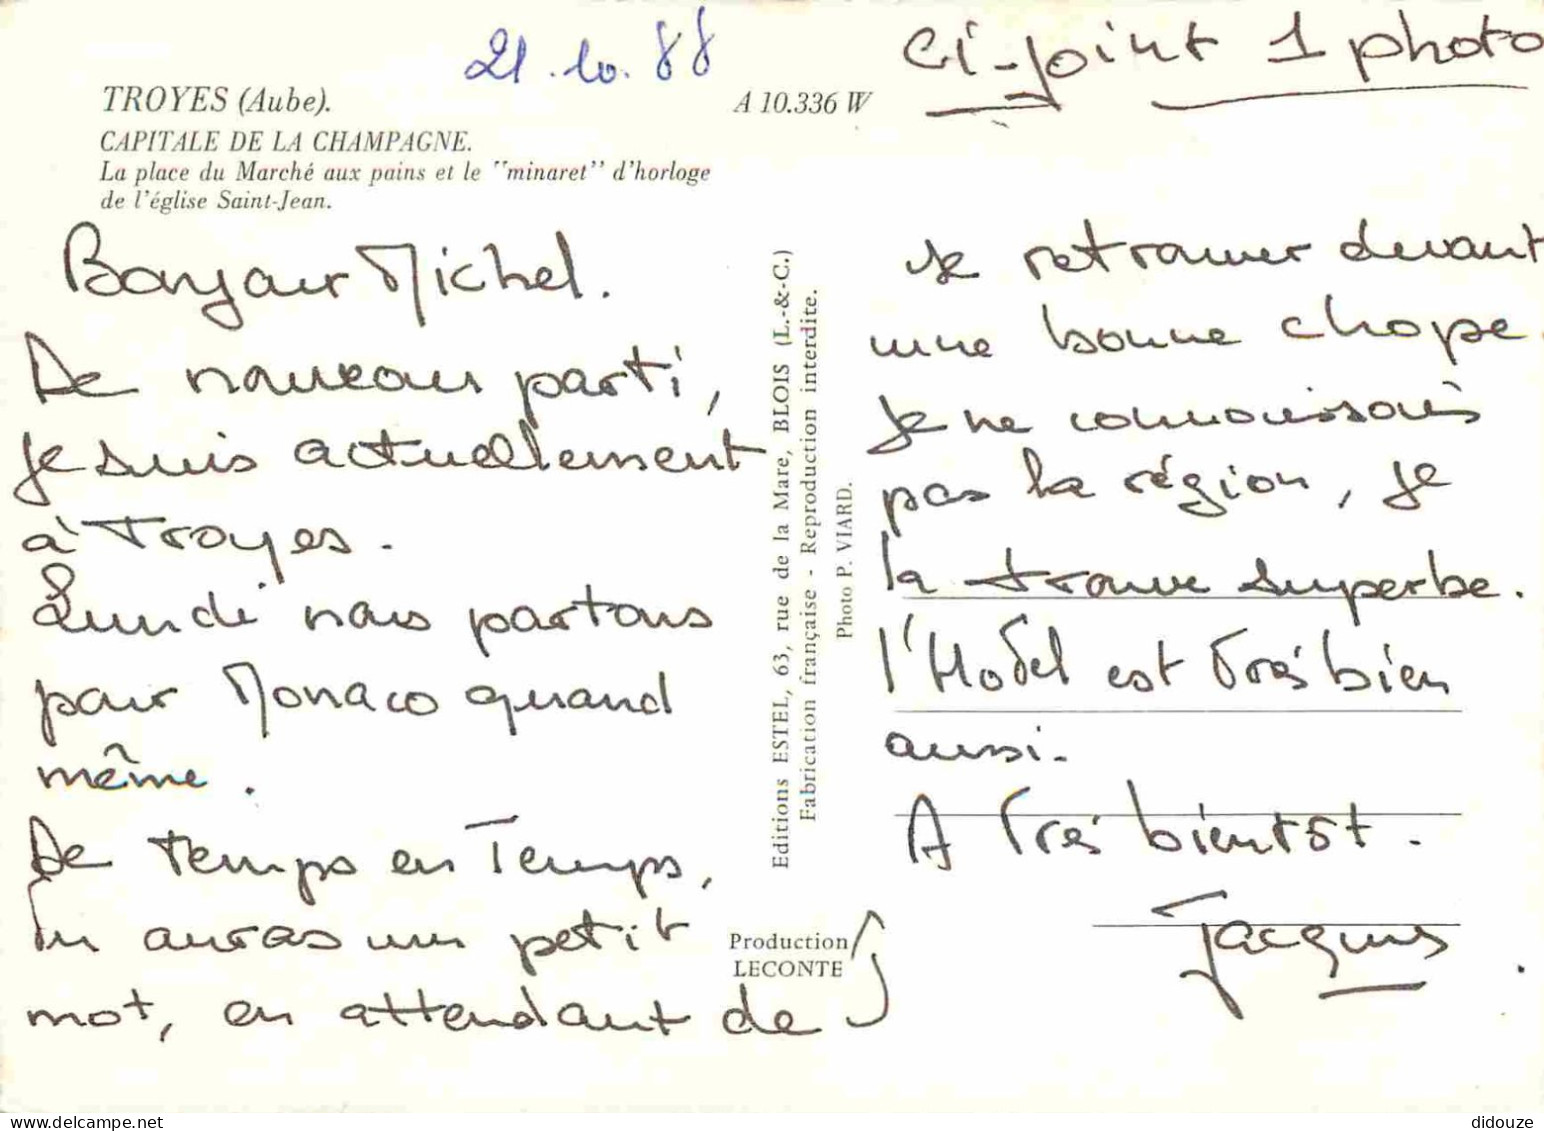 21.10.88
Ci-joint 1 photo
TROYES (Aube).
A 10.336 W
CAPITALE DE LA CHAMPAGNE.
La place du Marché aux pains et le "minaret" d'horloge
de l'église Saint-Jean.
Bonjour Michel.
De nouveau parti,
je suis actuellement
à Troyes.
Lundi nous partons
pour Monaco quand
même.
De temps en Temps,
Tu auras un petit
mot, en attendant de
Editions ESTEL, 63, rue de la Mare, BLOIS (L.-&-C.)
Fabrication française - Reproduction interdite.
Photo P. VIARD.
Production
LECONTE
se retrouver devant
une bonne chope.
Je ne connaissais
pas la région, je
la trouve superbe.
l'Hotel est très bien
aussi.
A Très bientôt.
Jacques
didouze